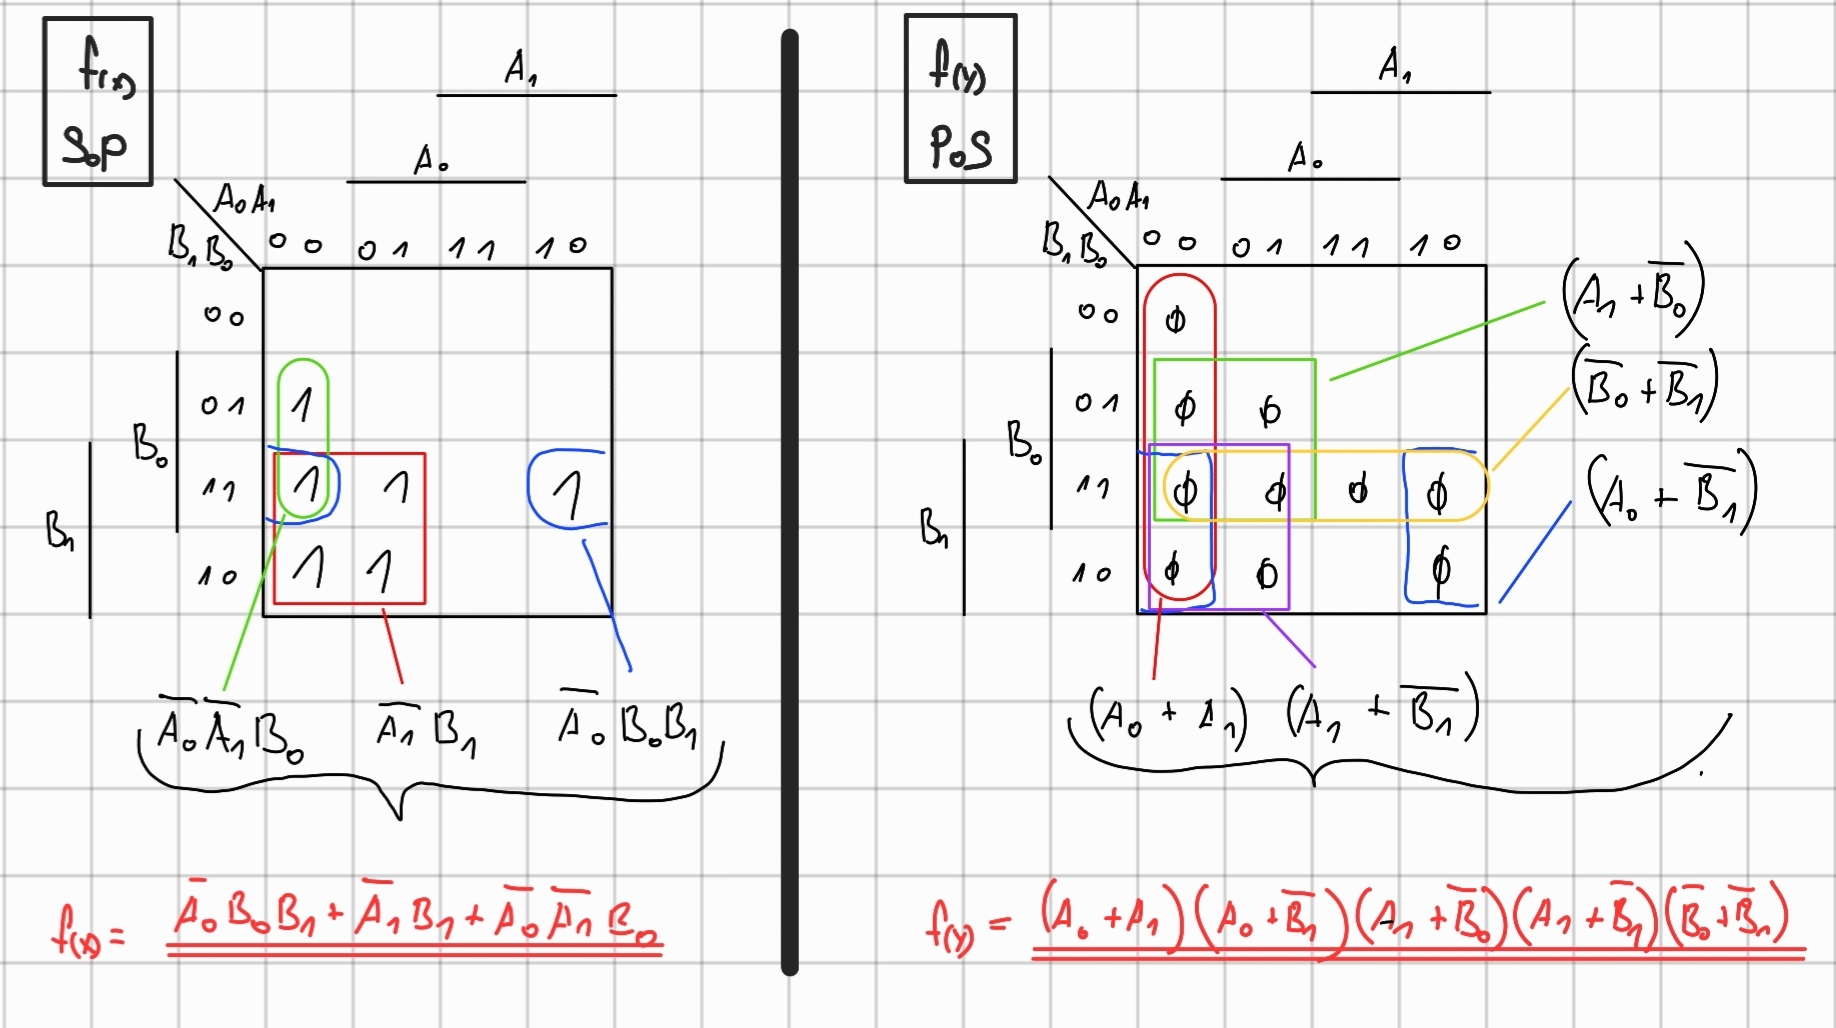 f(x)
SoP
A₁
A₀
A₀A₁
B₁B₀
0 0 0 1 1 1 1 0
0 0
0 1 1
B₀
1 1 1 1 1
B₁
1 0 1 1
A̅₀ A̅₁ B₀ A̅₁ B₁ A̅₀ B₀ B₁
f(x) = A̅₀ B₀ B₁ + A̅₁ B₁ + A̅₀ A̅₁ B₀
f(y)
PoS
A₁
A₀
A₀A₁
B₁B₀
0 0 0 1 1 1 1 0
0 0 0
(A₁ + B̅₀)
0 1 0 0
(B̅₀ + B̅₁)
B₀
1 1 0 0 0 0
(A₀ + B̅₁)
B₁
1 0 0 0 0
(A₀ + A₁) (A₁ + B̅₁)
f(y) = (A₀ + A₁)(A₀ + B̅₁)(A₁ + B̅₀)(A₁ + B̅₁)(B̅₀ + B̅₁)